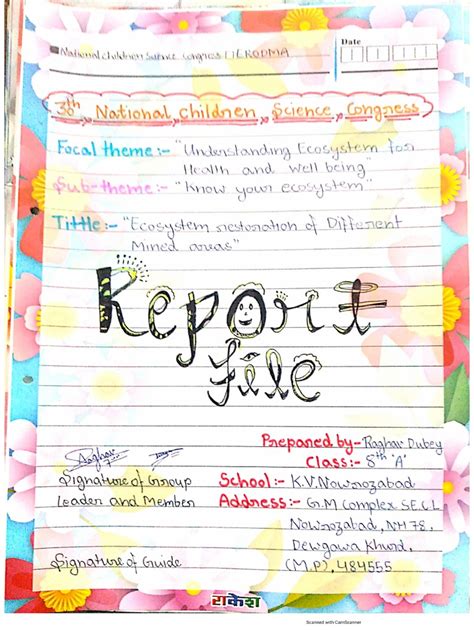 National children Science Congress
Date
30th National Children Science Congress
Focal theme:- "Understanding Ecosystem for
Health and Well being"
Sub-theme:- "Know your ecosystem"
Tittle:- "Ecosystem restoration of Different
Mined areas"
Report
file
Prepared by- Raghav Dubey
Class:- 8th 'A'
Signature of Group
Leader and Member
School:- K.V. Nowrozabad
Address:- G.M Complex S.E.C.L
Nowrozabad, NH 78,
Dewgawa Khurd,
(M.P), 484555
Signature of Guide
राकेश
Scanned with CamScanner